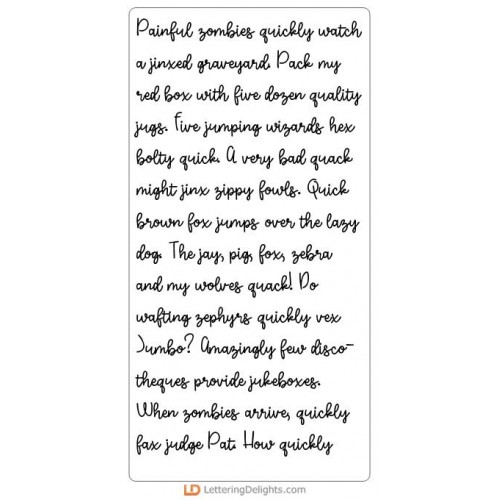 Painful zombies quickly watch
a jinxed graveyard. Pack my
red box with five dozen quality
jugs. Five jumping wizards hex
bolty quick. A very bad quack
might jinx zippy fowls. Quick
brown fox jumps over the lazy
dog. The jay, pig, fox, zebra
and my wolves quack! Do
wafting zephyrs quickly vex
Jumbo? Amazingly few disco-
theques provide jukeboxes.
When zombies arrive, quickly
fax judge Pat. How quickly
LD LetteringDelights.com